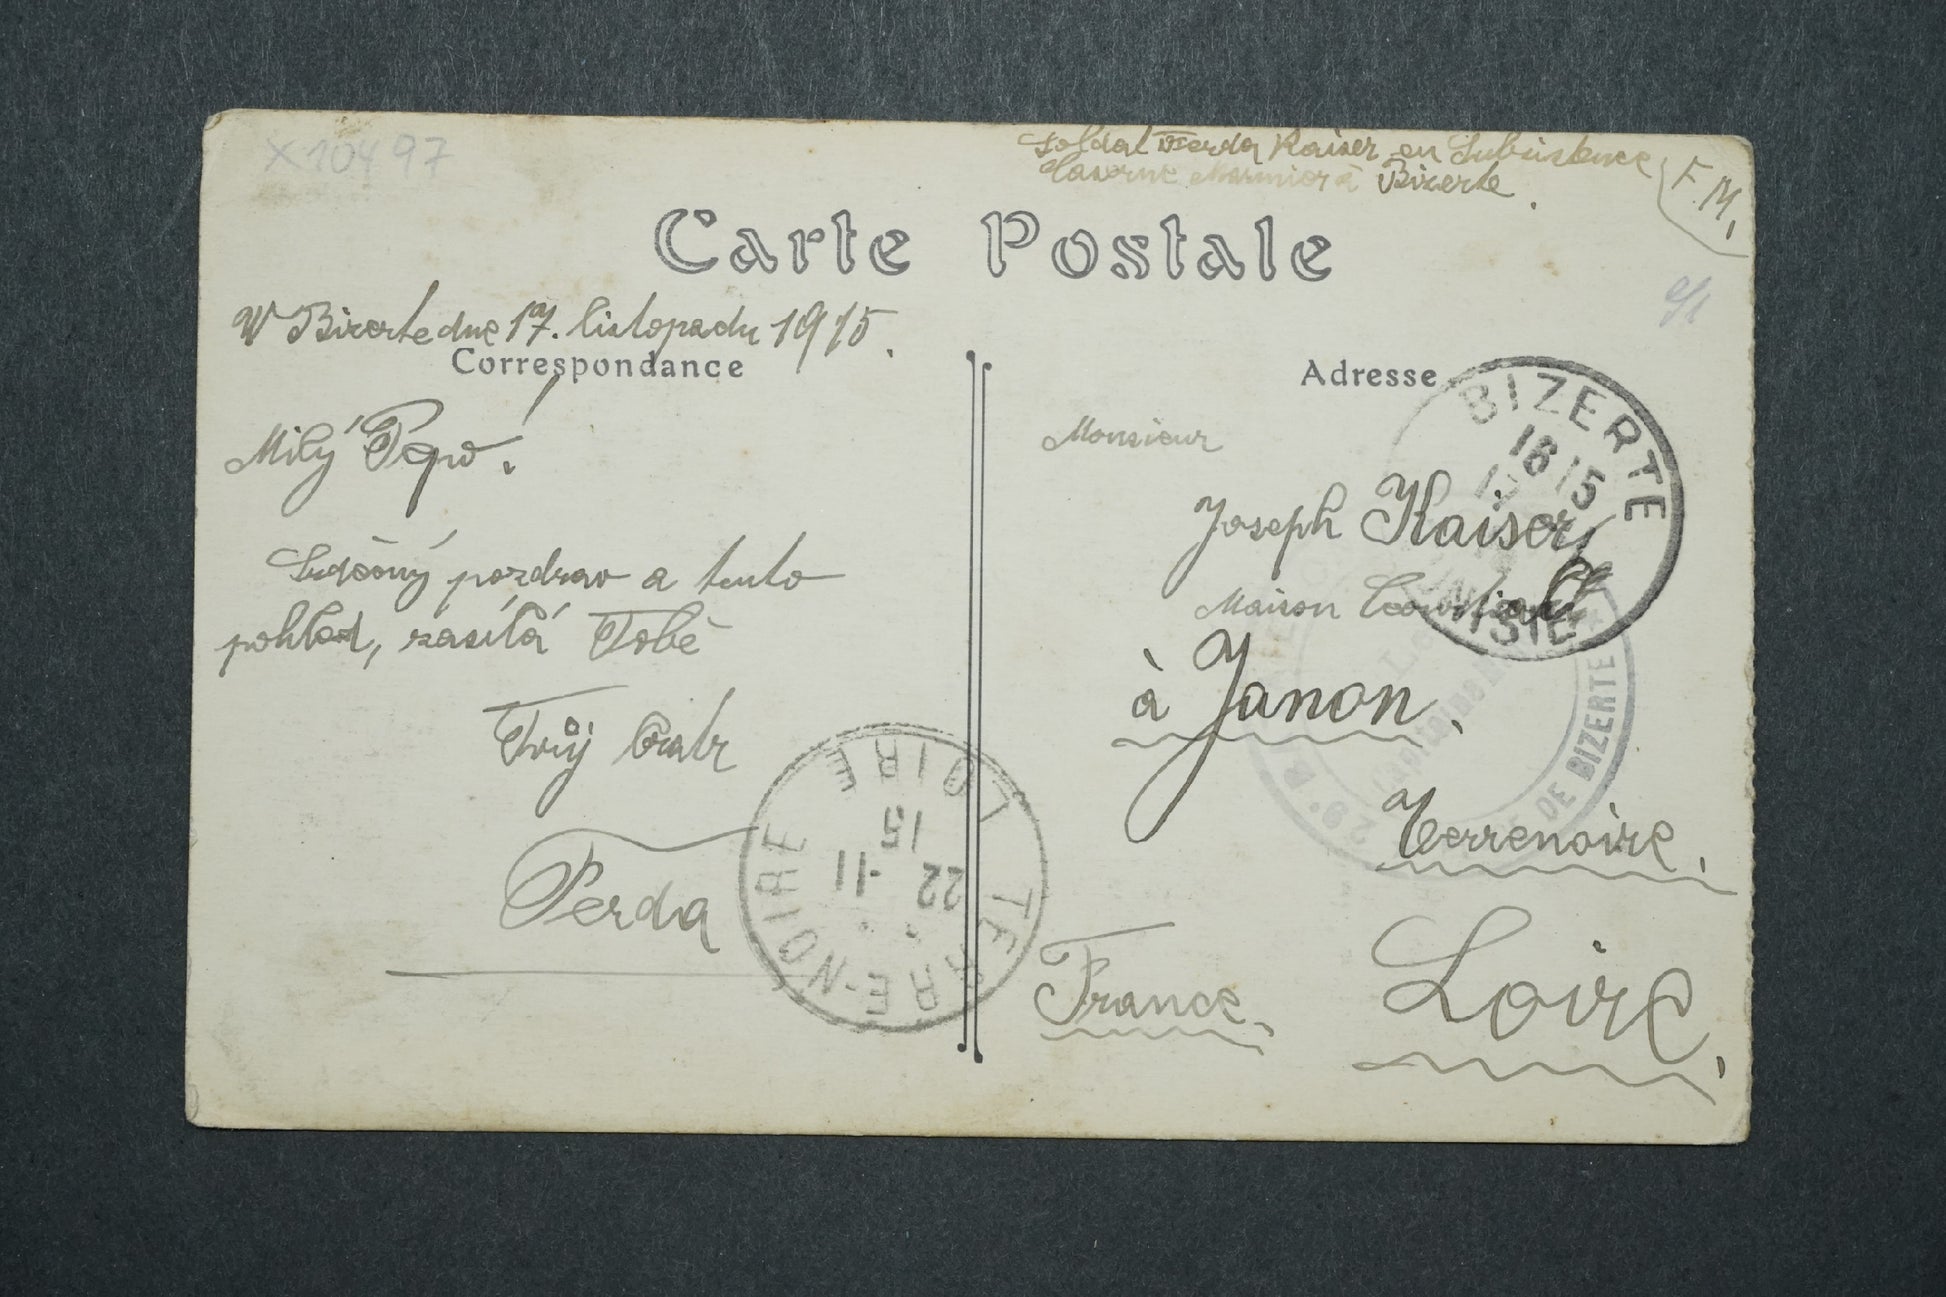 X10497
Soldat Ferda Kaiser en Subsistence
Caserne Marmier à Bizerte.
F. M.
Carte Postale
V Bizerte dne 17. listopadu 1915.
Correspondance
Adresse
Milý Pepo!
Srdečný pozdrav a tento
pohled, zasílá Tobě
Tvůj bratr
Ferda
Monsieur
Joseph Kaiser
Maison
à Janon,
Terrenoire,
Loire,
France,
BIZERTE
18 15
TUNISIE
TERRE-NOIRE
LOIRE
22 -11
15
29e B
DE BIZERTE
Capitaine